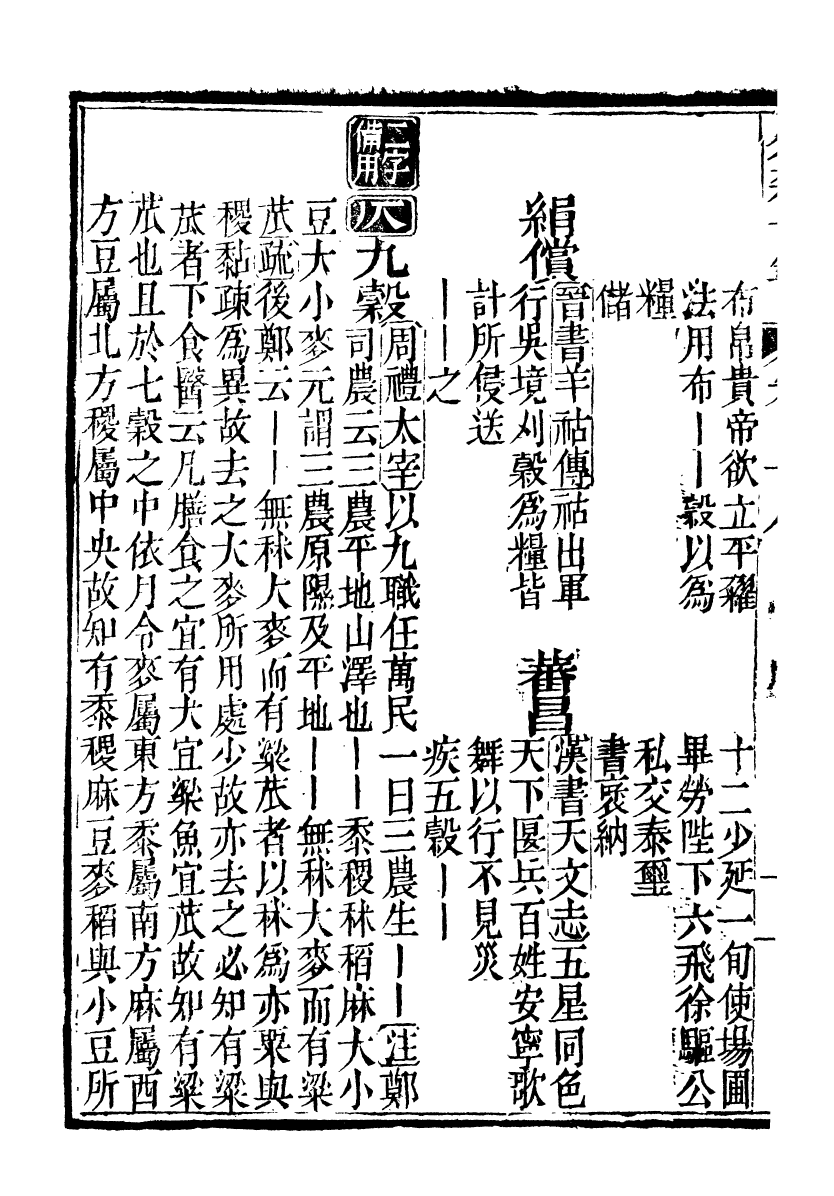 布帛貴帝欲立平糴
法用布丨丨穀以為
糧
儲
十二少延一旬使場圃
畢勞陛下六飛徐驅公
私交泰璽
書褒納
絹償
晉書羊祜傳祜出軍
行吳境刈穀為糧皆
計所侵送
丨丨之
蕃昌
漢書天文志五星同色
天下偃兵百姓安寧歌
舞以行不見災
疾五穀丨丨
二字備用
八
九穀
周禮太宰以九職任萬民一曰三農生丨丨注鄭
司農云三農平地山澤也丨丨黍稷秫稻麻大小
豆大小麥元謂三農原隰及平地丨丨無秫大麥而有粱
苽疏後鄭云丨丨無秫大麥而有粱苽者以秫為亦粟與
稷黏疎為異故去之大麥所用處少故亦去之必知有粱
苽者下食醫云凡膳食之宜有犬宜粱魚宜苽故知有粱
苽也且於七穀之中依月令麥屬東方黍屬南方麻屬西
方豆屬北方稷屬中央故知有黍稷麻豆麥稻與小豆所